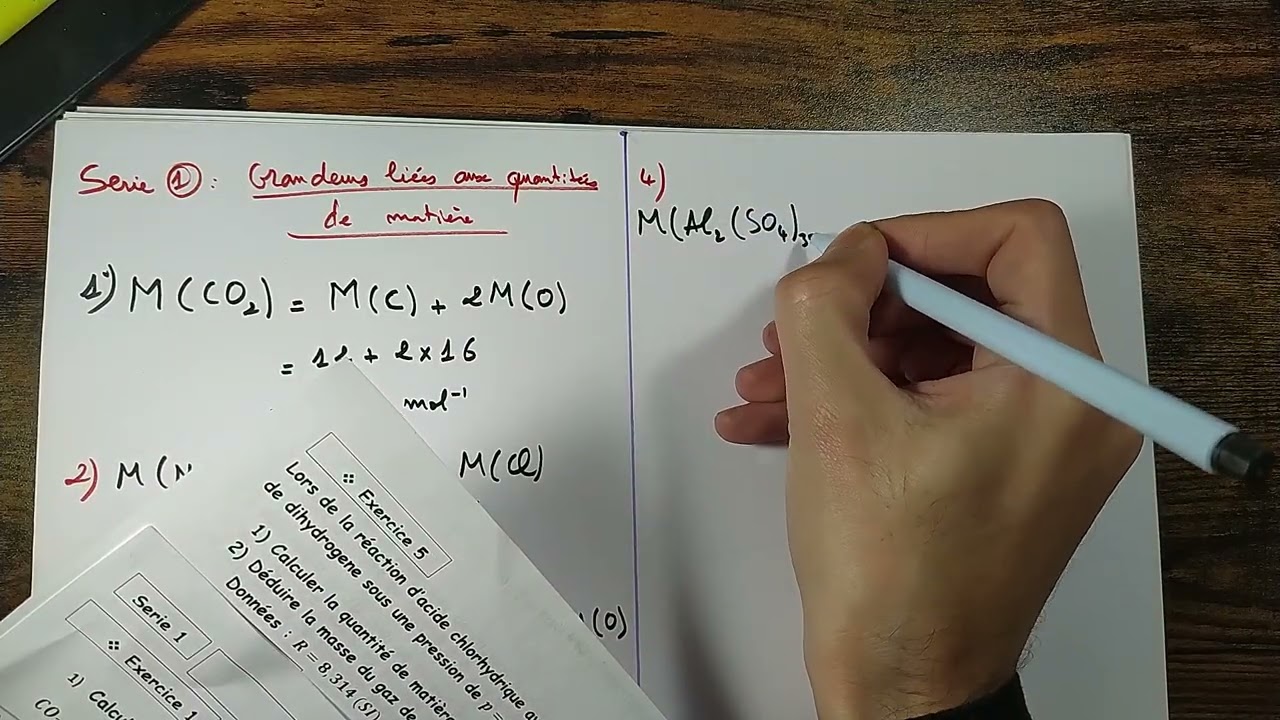 Serie ① : Grandeurs liées aux quantités
de matière
1°) M(CO₂) = M(C) + 2M(O)
= 12 + 2×16
mol⁻¹
2) M(N
M(Cl)
(O)
4)
M(Al₂(SO₄)₃
❖ Exercice 5
Lors de la réaction d'acide chlorhydrique
de dihydrogene sous une pression de p =
1) Calculer la quantité de matière
2) Déduire la masse du gaz de
Données : R = 8,314 (SI)
Serie 1
❖ Exercice 1
1) Calcu
CO